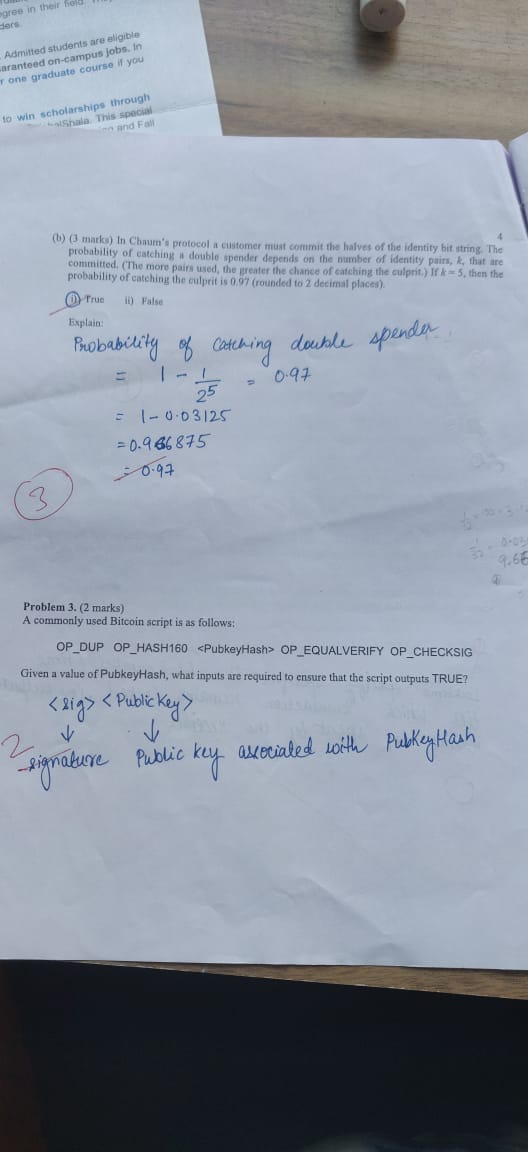 gree in their field.
ders.
Admitted students are eligible
aranteed on-campus jobs. In
r one graduate course if you
to win scholarships through
Shala. This special
and Fall
4
(b) (3 marks) In Chaum's protocol a customer must commit the halves of the identity bit string. The
probability of catching a double spender depends on the number of identity pairs, k, that are
committed. (The more pairs used, the greater the chance of catching the culprit.) If k = 5, then the
probability of catching the culprit is 0.97 (rounded to 2 decimal places).
i) True ii) False
Explain:
Probability of catching double spender
= 1 - 1/2^5 = 0.97
= 1 - 0.03125
= 0.966875
= 0.97
3
Problem 3. (2 marks)
A commonly used Bitcoin script is as follows:
OP_DUP OP_HASH160 <PubkeyHash> OP_EQUALVERIFY OP_CHECKSIG
Given a value of PubkeyHash, what inputs are required to ensure that the script outputs TRUE?
<sig> <Public Key>
↓ ↓
2
signature Public key associated with PubKeyHash